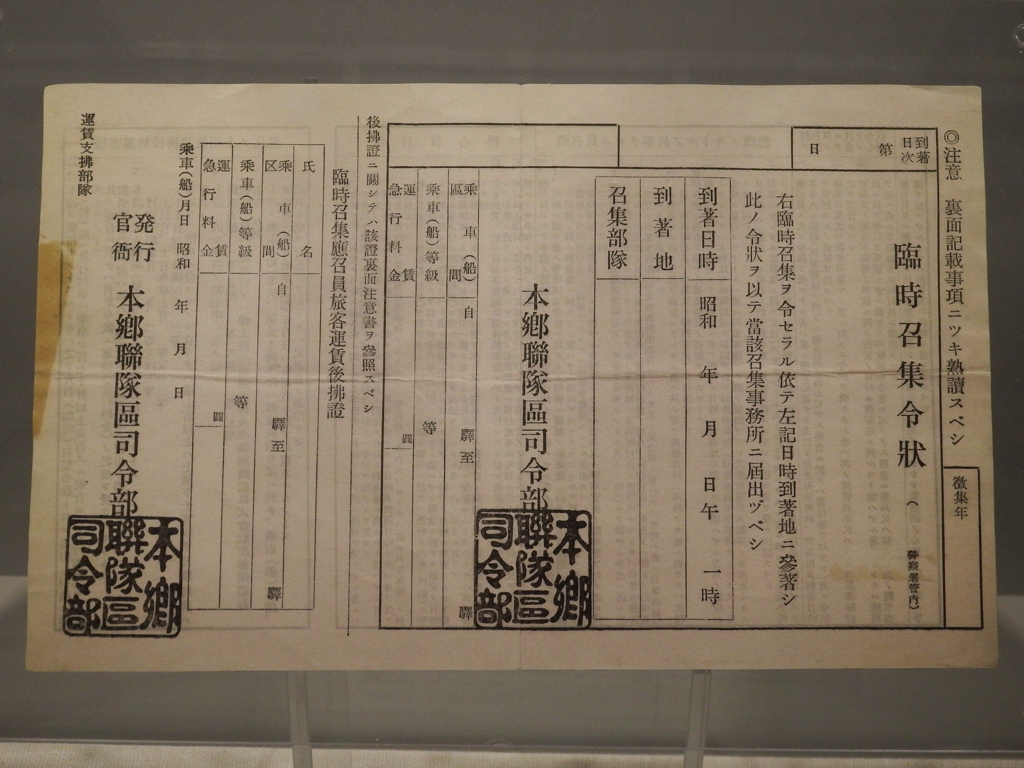 ◎注意 裏面記載事項ニツキ熟讀スベシ
徵集年
到著日次 第 日
臨時召集令狀 ( 警察署管内)
右臨時召集ヲ令セラル依テ左記日時到著地ニ參著シ
此ノ令狀ヲ以テ當該召集事務所ニ屆出ヅベシ
到著日時 昭和 年 月 日午 一時
到著地
召集部隊
本鄕聯隊區司令部
本鄕聯隊區司令部
乘車(船)區間 自 驛至 驛
乘車(船)等級 等
運賃
急行料金 圓
後拂證ニ關シテハ該證裏面注意書ヲ參照スベシ
臨時召集應召員旅客運賃後拂證
氏名
乘車(船)區間 自 驛至 驛
乘車(船)等級 等
運賃
急行料金 圓
乘車(船)月日 昭和 年 月 日
発行官衙 本鄕聯隊區司令部
本鄕聯隊區司令部
運賃支拂部隊